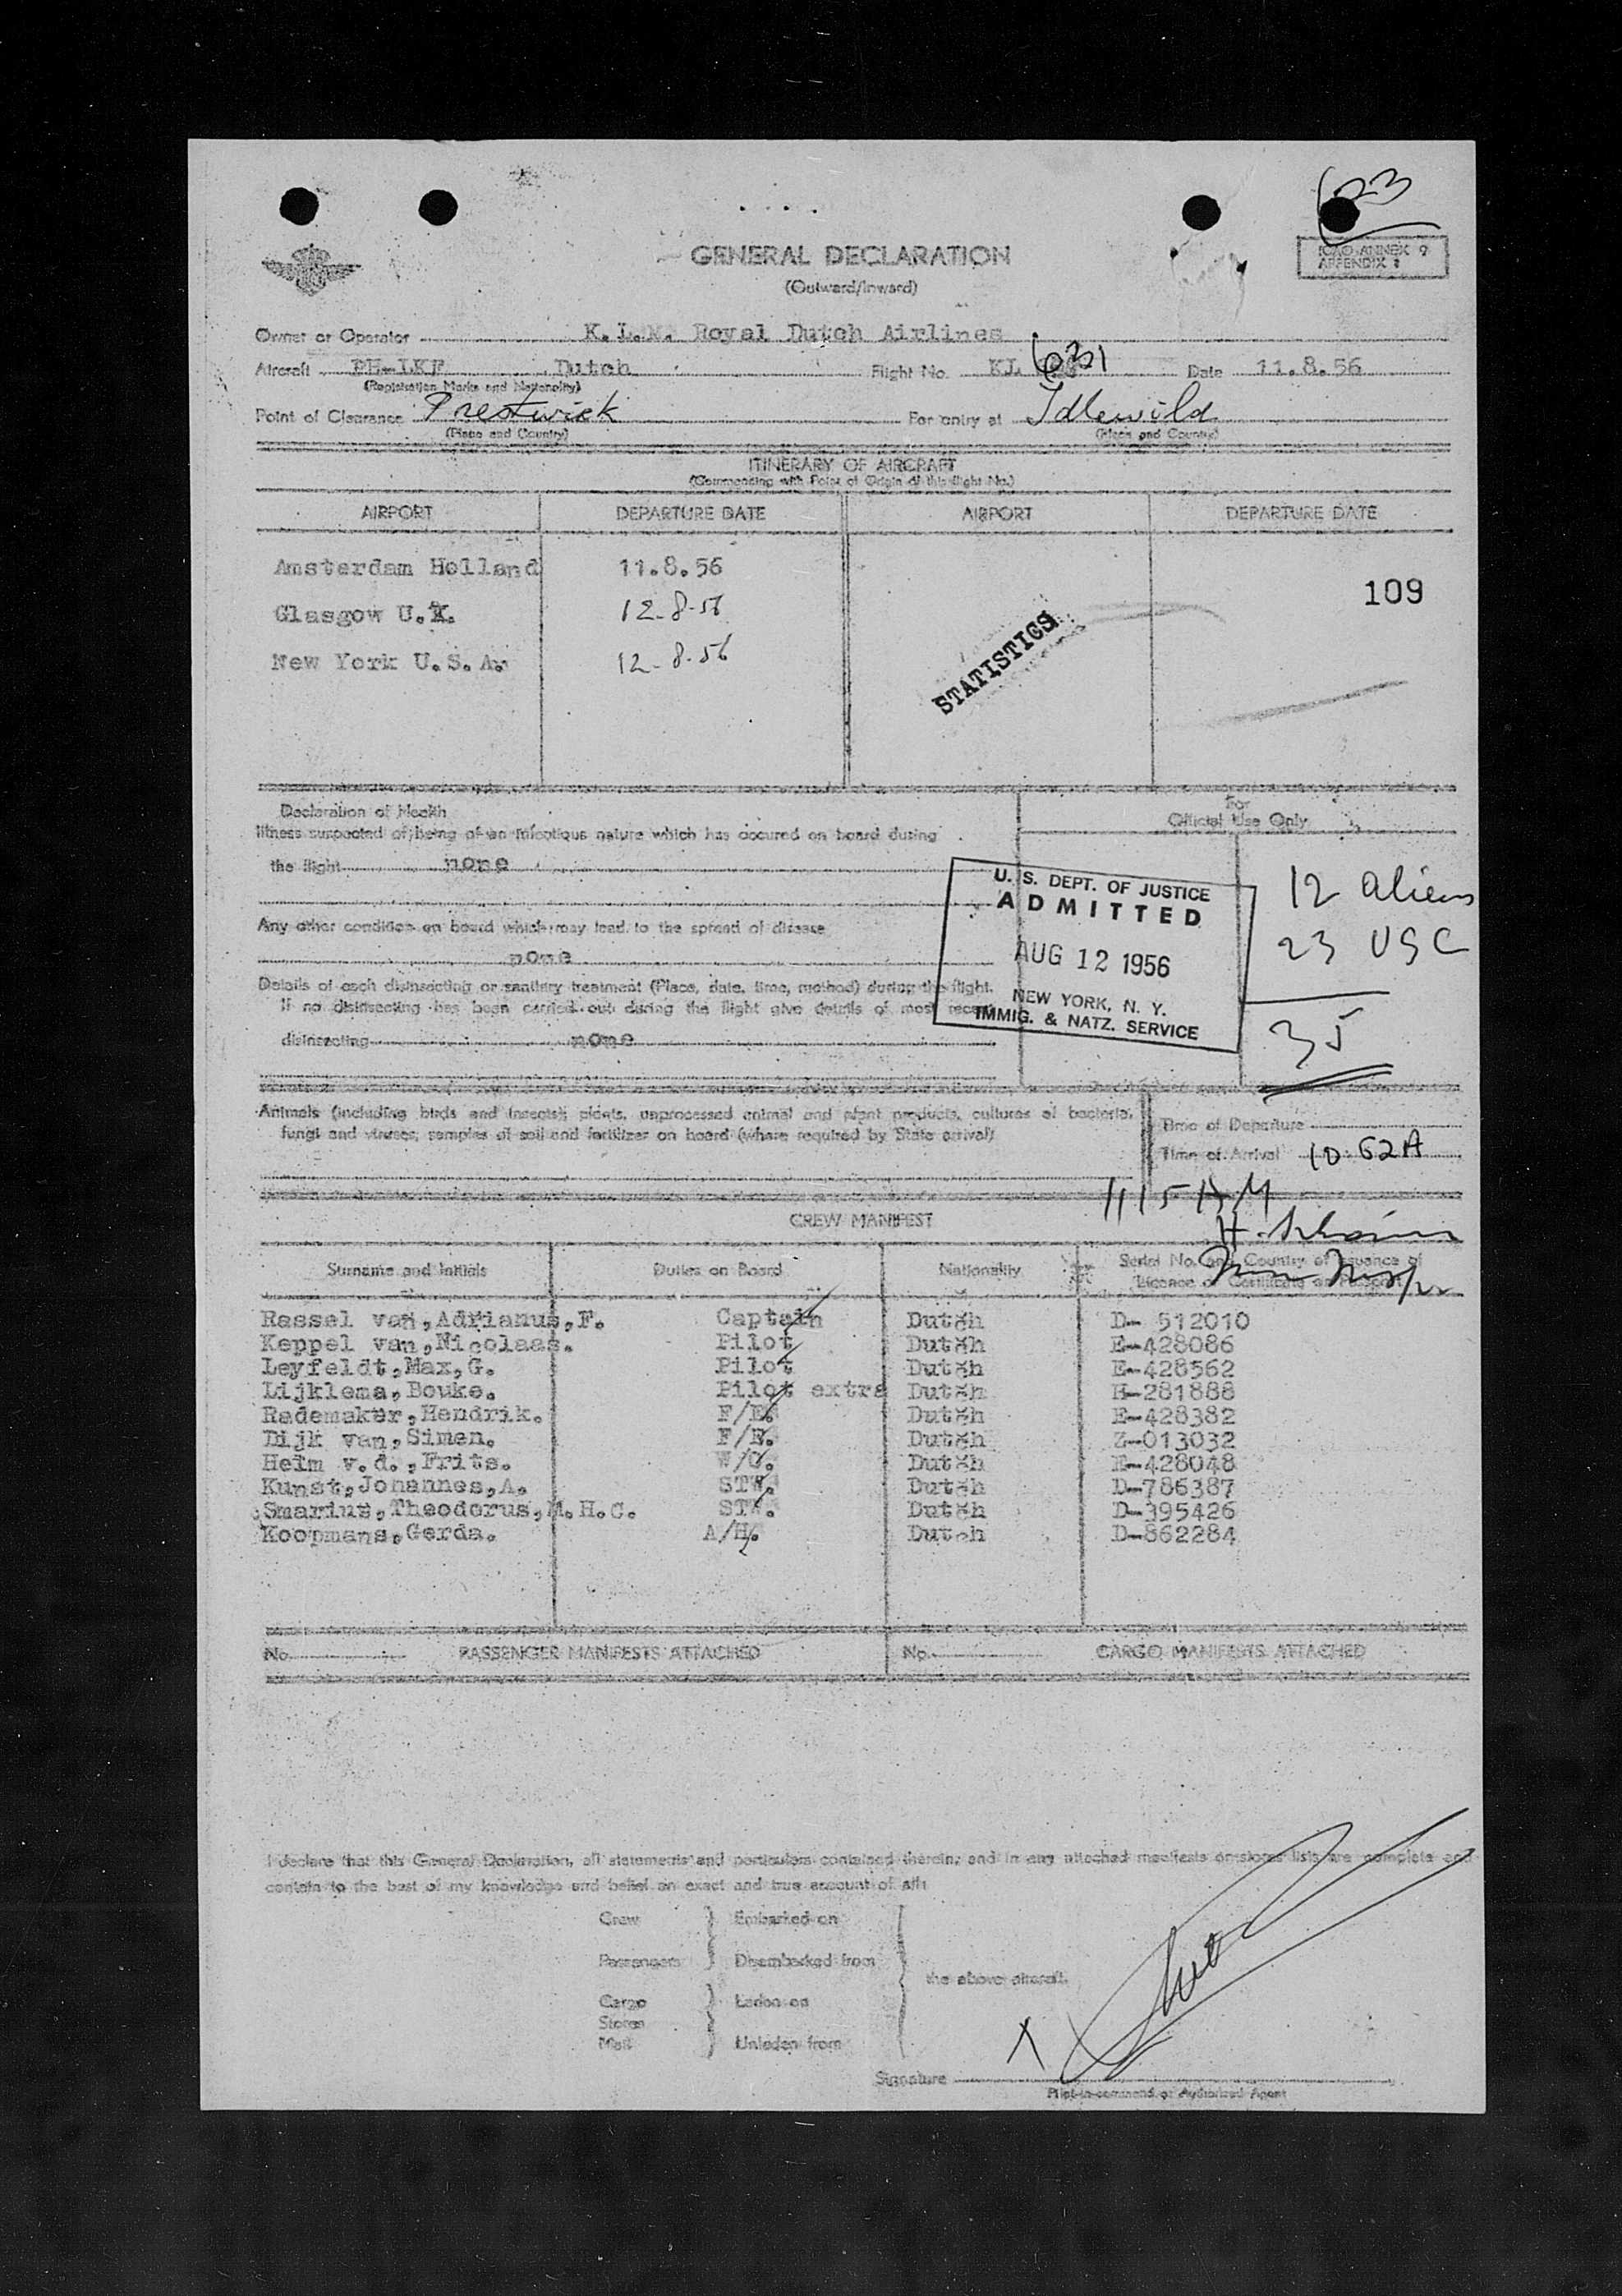 623
ICAO-ANNEX 9
APPENDIX 1
GENERAL DECLARATION
(Outward/Inward)
Owner or Operator K.L.M. Royal Dutch Airlines
Aircraft PH-LKF Dutch Flight No. KL 631 Date 11.8.56
(Registration Marks and Nationality)
Point of Clearance Prestwick For entry at Idlewild
(Place and Country) (Place and Country)
ITINERARY OF AIRCRAFT
(Commencing with Point of Origin of this flight No.)
AIRPORT DEPARTURE DATE AIRPORT DEPARTURE DATE
Amsterdam Holland 11.8.56
109
Glasgow U.K. 12-8-56
New York U.S.A. 12-8-56
STATISTICS
Declaration of Health
For
Official Use Only
Illness suspected of being of an infectious nature which has occured on board during
the flight none
12 aliens
U.S. DEPT. OF JUSTICE
ADMITTED
Any other condition on board which may lead to the spread of disease
23 USC
none
AUG 12 1956
Details of each disinsecting or sanitary treatment (Place, date, time, method) during the flight.
If no disinsecting has been carried out during the flight give details of most recent
NEW YORK, N. Y.
IMMIG. & NATZ. SERVICE
35
disinsecting none
Animals (including birds and insects), plants, unprocessed animal and plant products, cultures of bacteria,
fungi and viruses, samples of soil and fertilizer on board (where required by State arrival)
Time of Departure
Time of Arrival 10 52A
1115 AM
CREW MANIFEST
Surname and Initials Duties on Board Nationality Serial No. and Country of Issuance of
Licence or Certificate or Passport
Rassel van, Adrianus, F. Captain Dutch D- 512010
Keppel van, Nicolaas. Pilot Dutch E-428086
Leyfeldt, Max, G. Pilot Dutch E-428562
Lijklema, Bouke. Pilot extra Dutch E-281888
Rademaker, Hendrik. F/E. Dutch E-428382
Dijk van, Simen. F/E. Dutch Z-013032
Helm v.d., Frits. W/O. Dutch E-428048
Kunst, Johannes, A. STW. Dutch D-786387
Smarius, Theodorus, M.H.C. STW. Dutch D-395426
Koopmans, Gerda. A/H. Dutch D-862284
No. PASSENGER MANIFESTS ATTACHED No. CARGO MANIFESTS ATTACHED
I declare that this General Declaration, all statements and particulars contained therein, and in any attached manifests or stores lists are complete and
contain to the best of my knowledge and belief an exact and true account of all:
Crew Embarked on
Passengers Disembarked from
the above aircraft.
Cargo Laden on
Stores
Mail Unladen from
X
Signature
Pilot-in-command or Authorized Agent